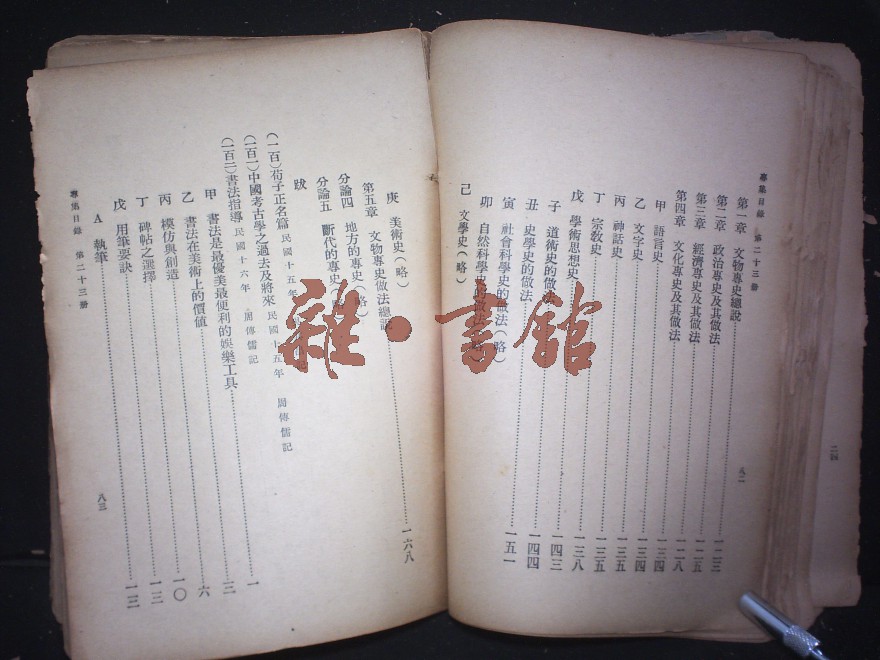 專集目錄 第二十三册
八二
第一章 文物專史總說 一二三
第二章 政治專史及其做法 一二五
第三章 經濟專史及其做法
第四章 文化專史及其做法 一二八
甲 語言史 一三四
乙 文字史 一三四
丙 神話史 一三五
丁 宗教史 一三五
戊 學術思想史 一三八
子 道術史的做法 一四三
丑 史學史的做法 一四四
寅 社會科學史的做法(略) 一五一
卯 自然科學史的做法
己 文學史(略)
二四
庚 美術史(略)
第五章 文物專史做法總說 一六八
分論四 地方的專史(略)
分論五 斷代的專史
跋
(一百)荀子正名篇 民國十五年 記
(一百一)中國考古學之過去及將來 民國十五年 周傳儒記
(一百二)書法指導 民國十六年 周傳儒記 一
甲 書法是最優美最便利的娛樂工具 三
乙 書法在美術上的價值 六
丙 模仿與創造 一〇
丁 碑帖之選擇 一三
戊 用筆要訣 一三
A 執筆
專集目錄 第二十三册
八三
雜·書館